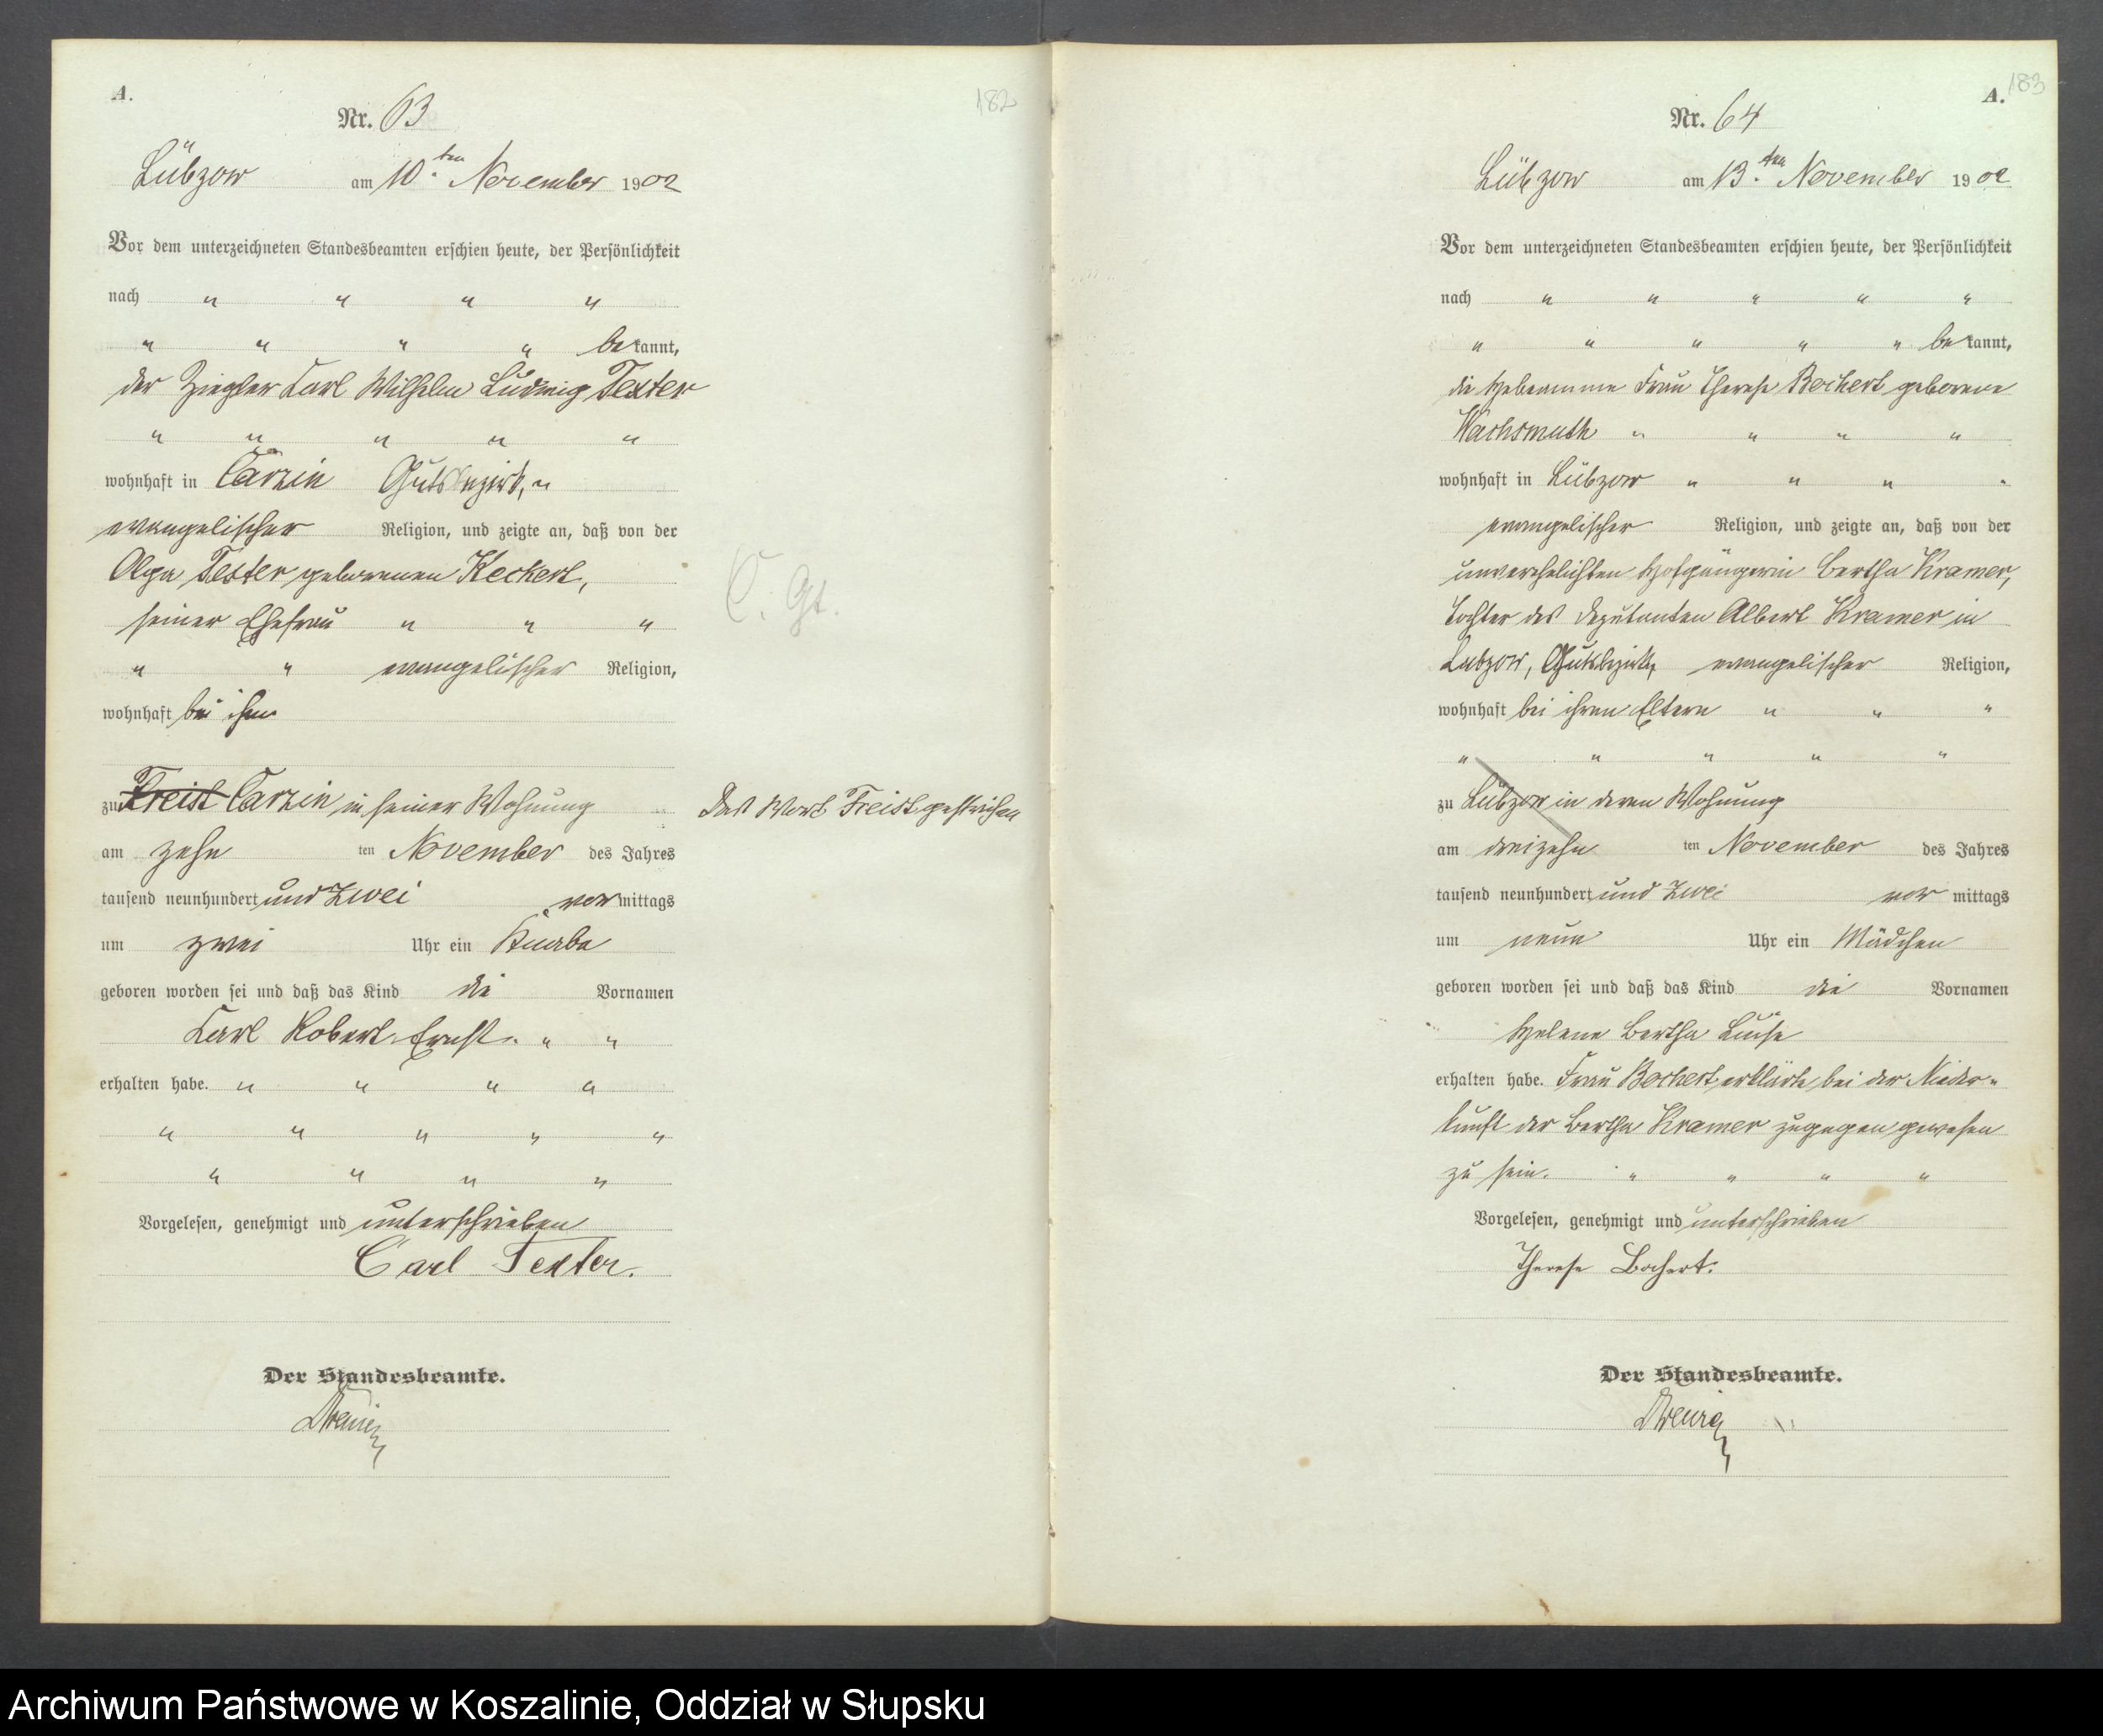 A.
182
Nr. 63
Lübzow am 10ten November 1902
Vor dem unterzeichneten Standesbeamten erschien heute, der Persönlichkeit
nach " " " "
" " " " bekannt,
der Ziegler Carl Wilhelm Ludwig Texter
" " " " "
wohnhaft in Carzin Gutsbezirk, "
evangelischer Religion, und zeigte an, daß von der
Olga Texter geborenen Keckert,
seiner Ehefrau " " "
" " evangelischer Religion,
wohnhaft bei ihm
C. Gt.
zu Freist Carzin in seiner Wohnung
Das Wort Freist gestrichen
am zehn ten November des Jahres
tausend neunhundert und zwei vor mittags
um zwei Uhr ein Knabe
geboren worden sei und daß das Kind die Vornamen
Carl Robert Ernst " "
erhalten habe. " " " "
" " " " "
" " " "
Vorgelesen, genehmigt und unterschrieben
Carl Texter.
Der Standesbeamte.
A.
183
Nr. 64
Lübzow am 13ten November 1902
Vor dem unterzeichneten Standesbeamten erschien heute, der Persönlichkeit
nach " " " " "
" " " " " bekannt,
die Hebeamme Frau Therese Bochert geborene
Wachsmuth " " " "
wohnhaft in Lübzow " " " "
evangelischer Religion, und zeigte an, daß von der
unverehelichten Hofgängerin Bertha Kramer,
Tochter des Deputanten Albert Kramer in
Lübzow, Gutsbezirk, evangelischer Religion,
wohnhaft bei ihren Eltern " " "
" " " " "
zu Lübzow in deren Wohnung
am dreizehn ten November des Jahres
tausend neunhundert und zwei vor mittags
um neun Uhr ein Mädchen
geboren worden sei und daß das Kind die Vornamen
Helene Bertha Luise
erhalten habe. Frau Bochert erklärte, bei der Nieder-
kunft der Bertha Kramer zugegen gewesen
zu sein. " " " "
Vorgelesen, genehmigt und unterschrieben
Therese Bochert.
Der Standesbeamte.
Archiwum Państwowe w Koszalinie, Oddział w Słupsku